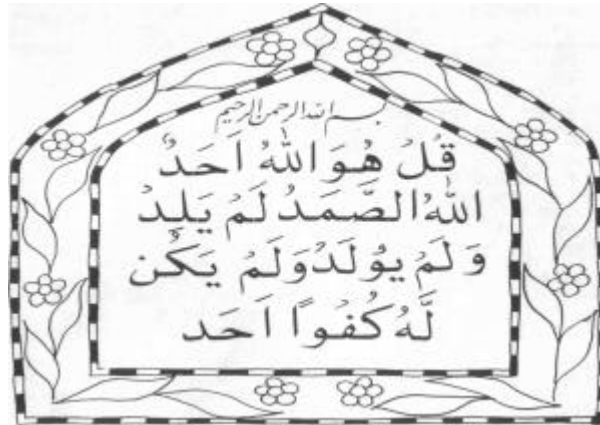 بسم الله الرحمن الرحیم
قُلْ هُوَ اللّٰهُ اَحَدٌ
اللّٰهُ الصَّمَدُ لَمْ یَلِدْ
وَ لَمْ یُولَدْ وَ لَمْ یَكُن
لَّهُ كُفُوًا اَحَد